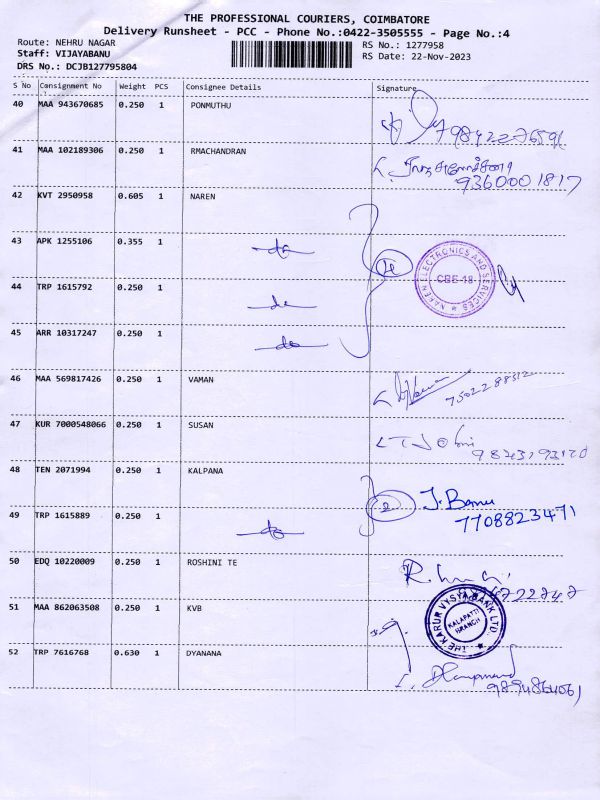 THE PROFESSIONAL COURIERS, COIMBATORE
Delivery Runsheet - PCC - Phone No.:0422-3505555 - Page No.:4
Route: NEHRU NAGAR
Staff: VIJAYABANU
DRS No.: DCJB127795804
RS No.: 1277958
RS Date: 22-Nov-2023
S No Consignment No Weight PCS Consignee Details Signature
40 MAA 943670685 0.250 1 PONMUTHU
9842276591
41 MAA 102189306 0.250 1 RMACHANDRAN
9360001817
42 KVT 2950958 0.605 1 NAREN
43 APK 1255106 0.355 1 do
NAREN ELECTRONICS AND SERVICES
CBE-18
44 TRP 1615792 0.250 1 do
45 ARR 10317247 0.250 1 do
46 MAA 569817426 0.250 1 VAMAN
7502288512
47 KUR 7000548066 0.250 1 SUSAN
48 TEN 2071994 0.250 1 KALPANA
2 J. Banu
7708823471
49 TRP 1615889 0.250 1 do
50 EDQ 10220009 0.250 1 ROSHINI TE
51 MAA 862063508 0.250 1 KVB
THE KARUR VYSYA BANK LTD.
KALAPATTI
BRANCH
52 TRP 7616768 0.630 1 DYANANA
9894864061